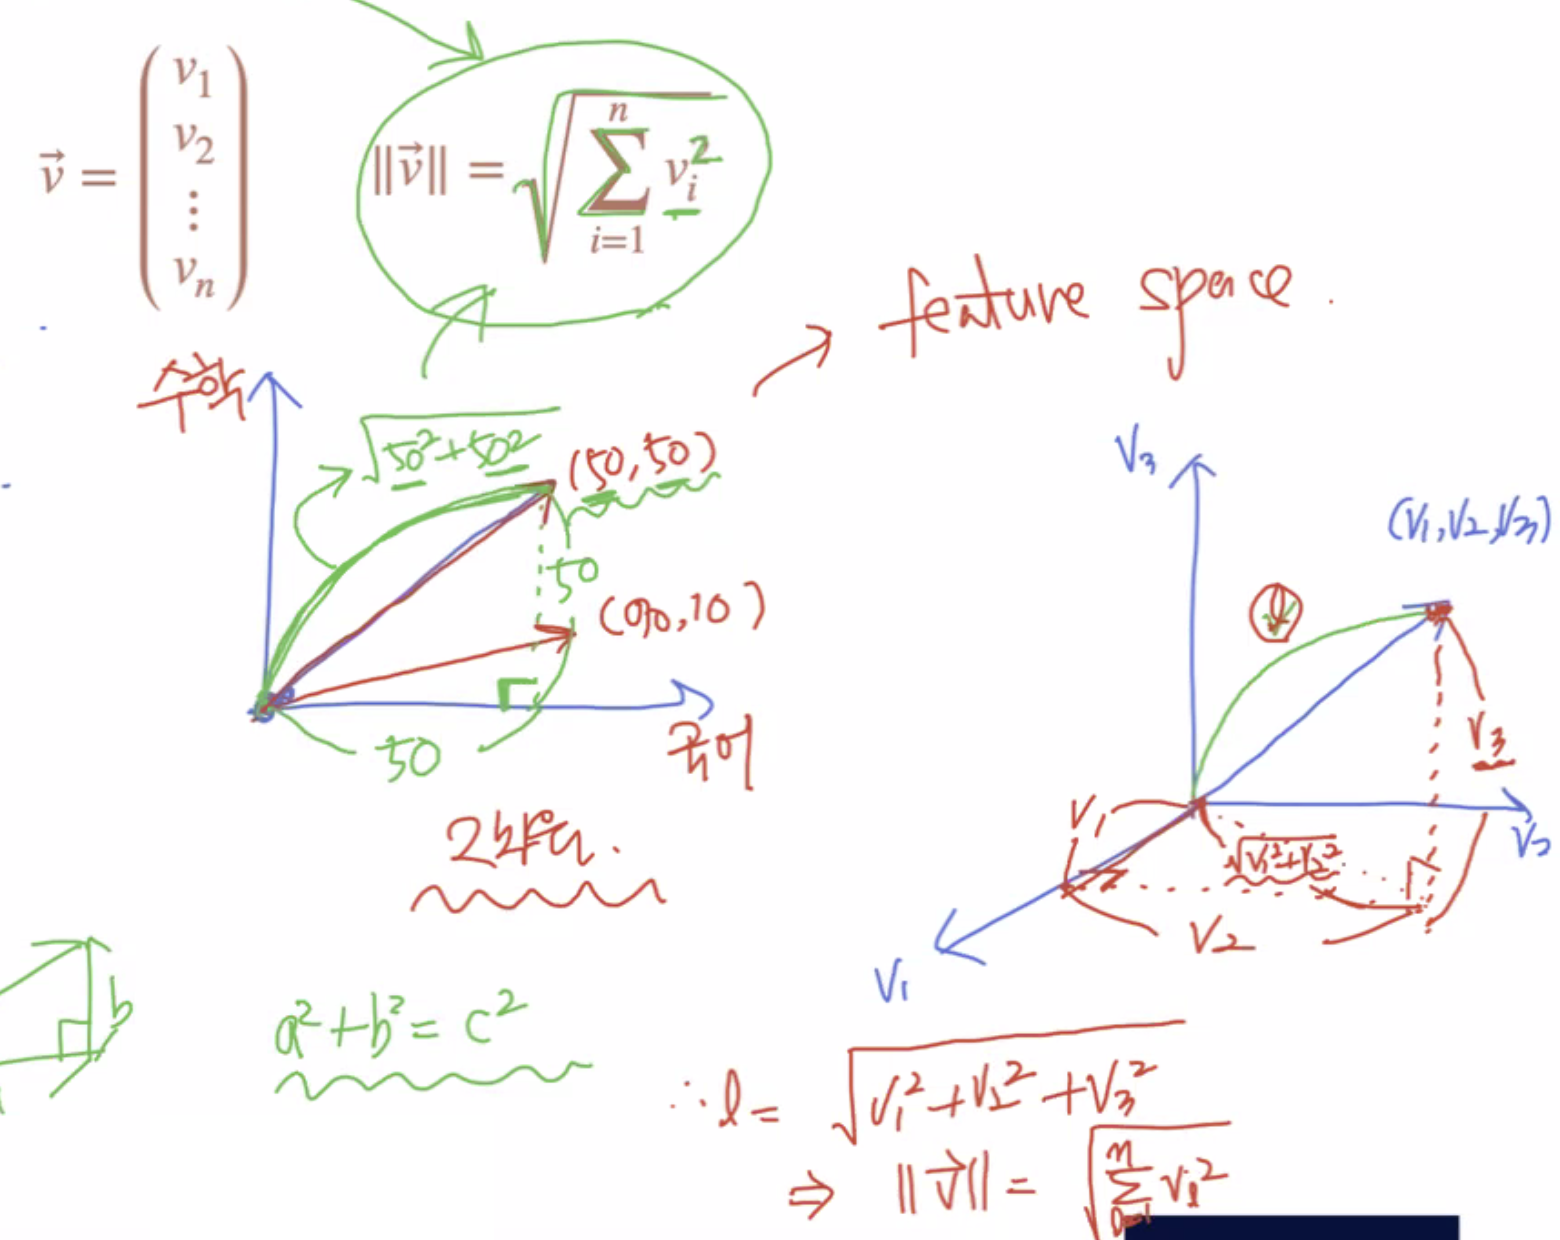 v⃗ = (v₁ v₂ ⋮ vₙ)
‖v⃗‖ = √(∑ᵢ₌₁ⁿ vᵢ²)
feature space.
수학
√(50²+50²)
(50,50)
50
(90,10)
50
국어
2차원.
V₃
(V₁,V₂,V₃)
l
V₃
V₁
√(V₁²+V₂²)
V₂
V₂
V₁
b
a²+b²=c²
∴ l = √(V₁²+V₂²+V₃²)
⇒ ‖V⃗‖ = √(∑ᵢ₌₁ⁿ Vᵢ²)